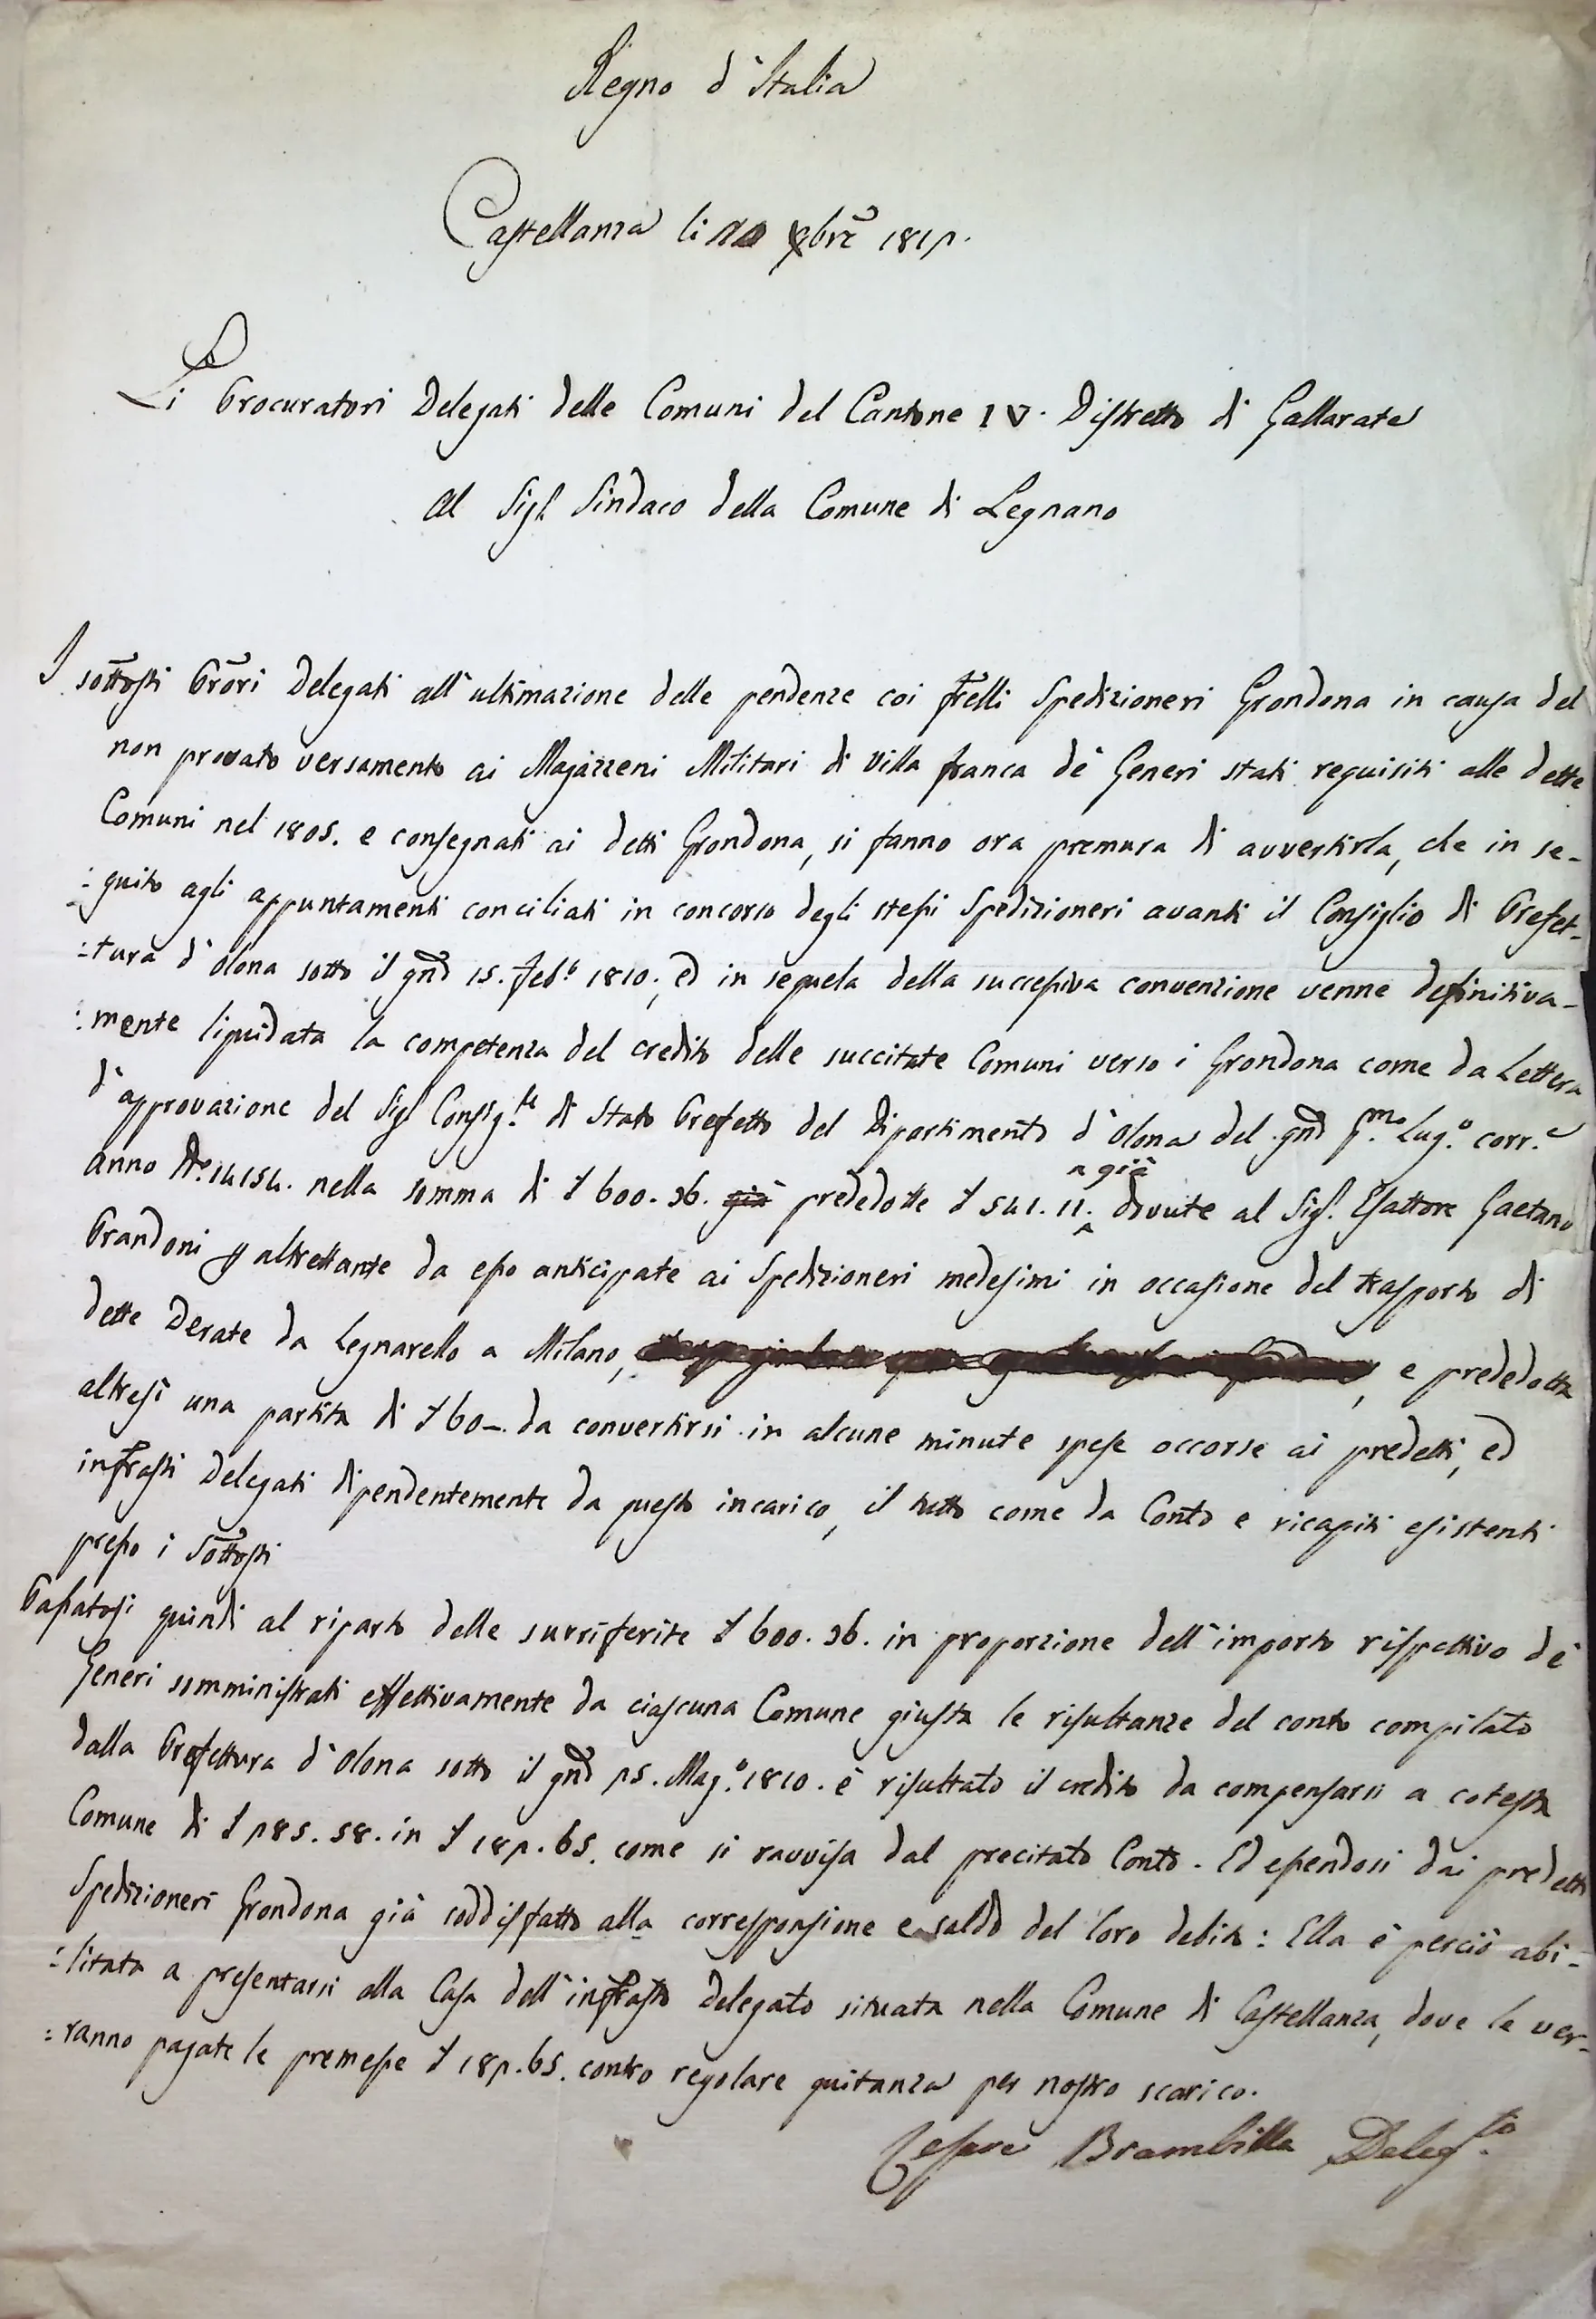 Regno d'Italia
Castellanza li 8bre 1811.
Li Procuratori Delegati delle Comuni del Cantone IV. Distretto di Gallarate
Al Sigr Sindaco della Comune di Legnano
I sottosti Prori Delegati all'ultimazione delle pendenze coi frelli Spedizioneri Grondona in causa del
non provato versamento ai Magazzeni Militari di Villa franca de' Generi stati requisiti alle dette
Comuni nel 1805. e consegnati ai detti Grondona, si fanno ora premura di avvertirla, che in se-
:guito agli appuntamenti conciliati in concorso degli stessi Spedizioneri avanti il Consiglio di Prefet-
:tura d'Olona sotto il gno 15. febo 1810., ed in sequela della successiva convenzione venne definitiva-
:mente liquidata la competenza del credito delle succitate Comuni verso i Grondona come da Lettera
d'approvazione del Sigr Consigre di Stato Prefetto del Dipartimento d'Olona del gno Pmo Lugo corre
anno No 14154. nella somma di £ 600. 36. già prededotte £ 541. 11. già dovute al Sigr Esattore Gaetano
Brandoni p altrettante da esso anticipate ai Spedizioneri medesimi in occasione del trasporto di
dette Derate da Legnarello a Milano, , e prededotta
altresì una partita di £ 60_. da convertirsi in alcune minute spese occorse ai predetti, ed
infrasti Delegati dipendentemente da questo incarico, il tutto come da Conto e ricapiti esistenti
presso i Sottosti
Passatosi quindi al riparto delle surriferite £ 600. 36. in proporzione dell'importo rispettivo de'
Generi somministrati effettivamente da ciascuna Comune giusta le risultanze del conto compilato
dalla Prefettura d'Olona sotto il gno 15. Mago 1810. è risultato il credito da compensarsi a cotesta
Comune di £ 185. 58. in £ 181. 65. come si ravvisa dal precitato Conto. Ed essendosi dai predetti
Spedizioneri Grondona già soddisfatto alla corresponsione e saldo del loro debito: Ella è perciò abi-
:litata a presentarsi alla Casa dell'infrasto Delegato situata nella Comune di Castellanza, dove le ver-
:ranno pagate le premesse £ 181. 65. contro regolare quitanza per nostro scarico.
Cesare Brambilla Delegto